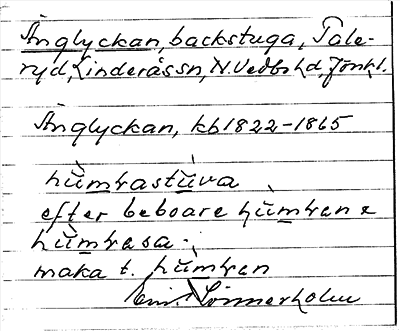 Änglyckan, backstuga, Tale-
ryd, Linderås sn, N. Vedbo hd, Jönk l.
Änglyckan, kb 1822-1865
hùmrastùva
efter beboare hùmran &
hùmrasa.
maka t. hùmran